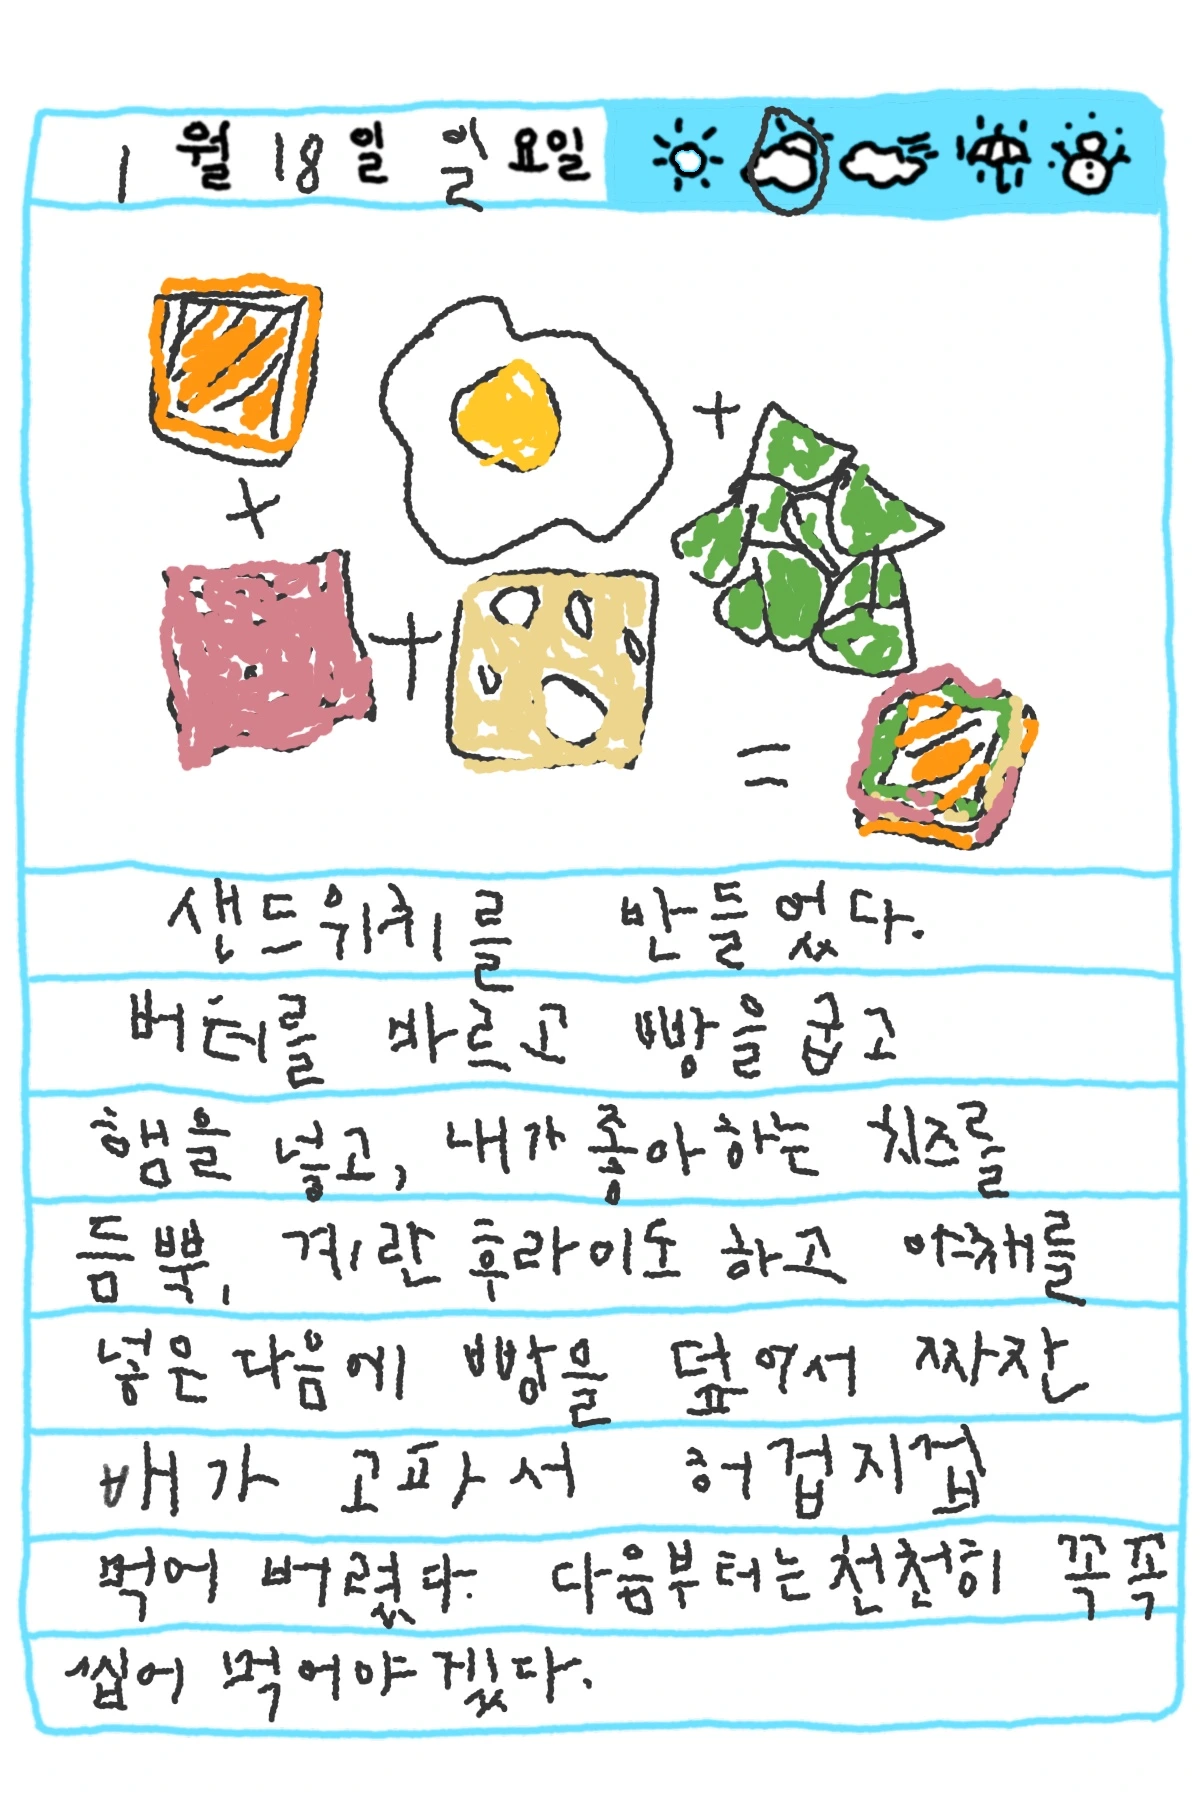 1월 18일 일요일
샌드위치를 만들었다.
버터를 바르고 빵을 굽고
햄을 넣고, 내가 좋아하는 치즈를
듬뿍, 계란 후라이도 하고 야채를
넣은 다음에 빵을 덮어서 짜잔
배가 고파서 허겁지겁
먹어 버렸다. 다음부터는 천천히 꼭꼭
씹어 먹어야 겠다.